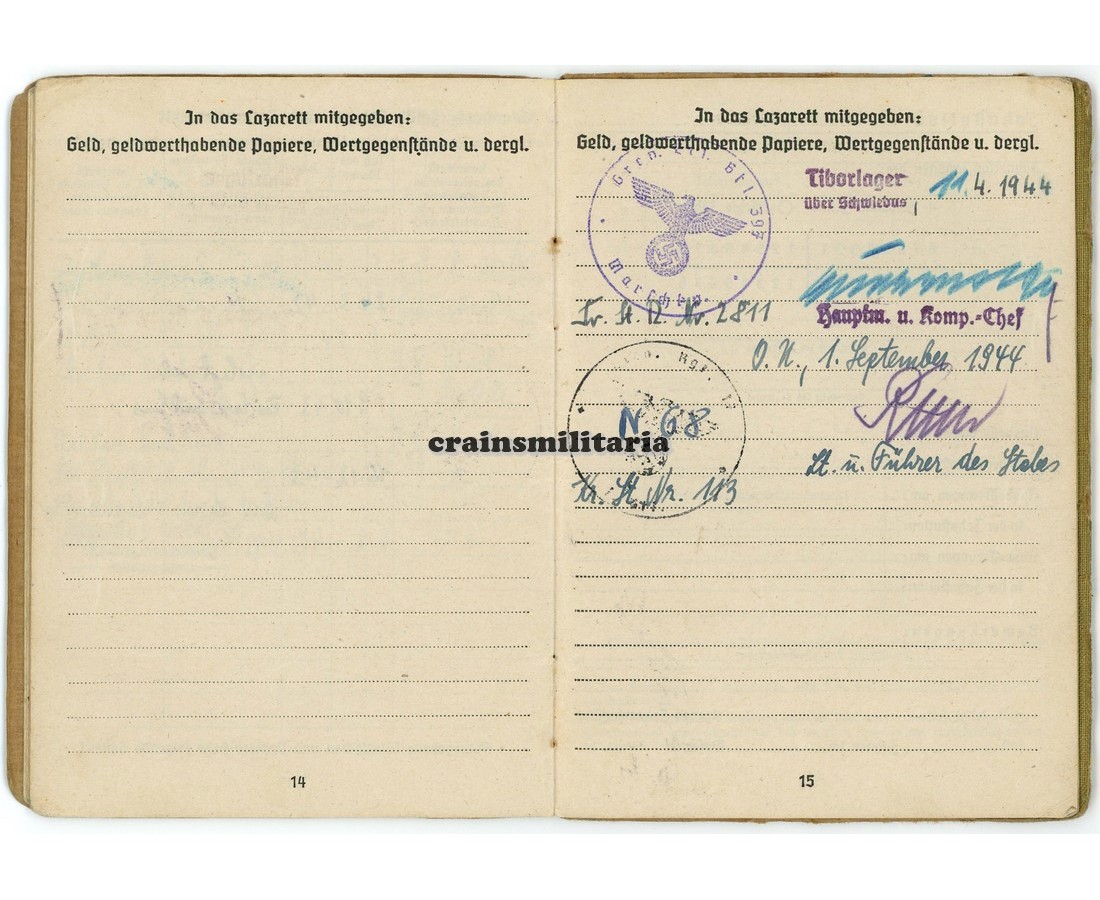 In das Lazarett mitgegeben:
Geld, geldwerthabende Papiere, Wertgegenstände u. dergl.
14
In das Lazarett mitgegeben:
Geld, geldwerthabende Papiere, Wertgegenstände u. dergl.
Gren. Ers. Btl. 397
Marschkp.
Tiborlager
über Schwiebus,
11.4.1944
Hauptm. u. Komp.-Chef
Tr. St. N. Nr. 2811
O. U., 1. September 1944
N 68
Lt. u. Führer des Stabes
Kr. St. Nr. 113
15
crainsmilitaria